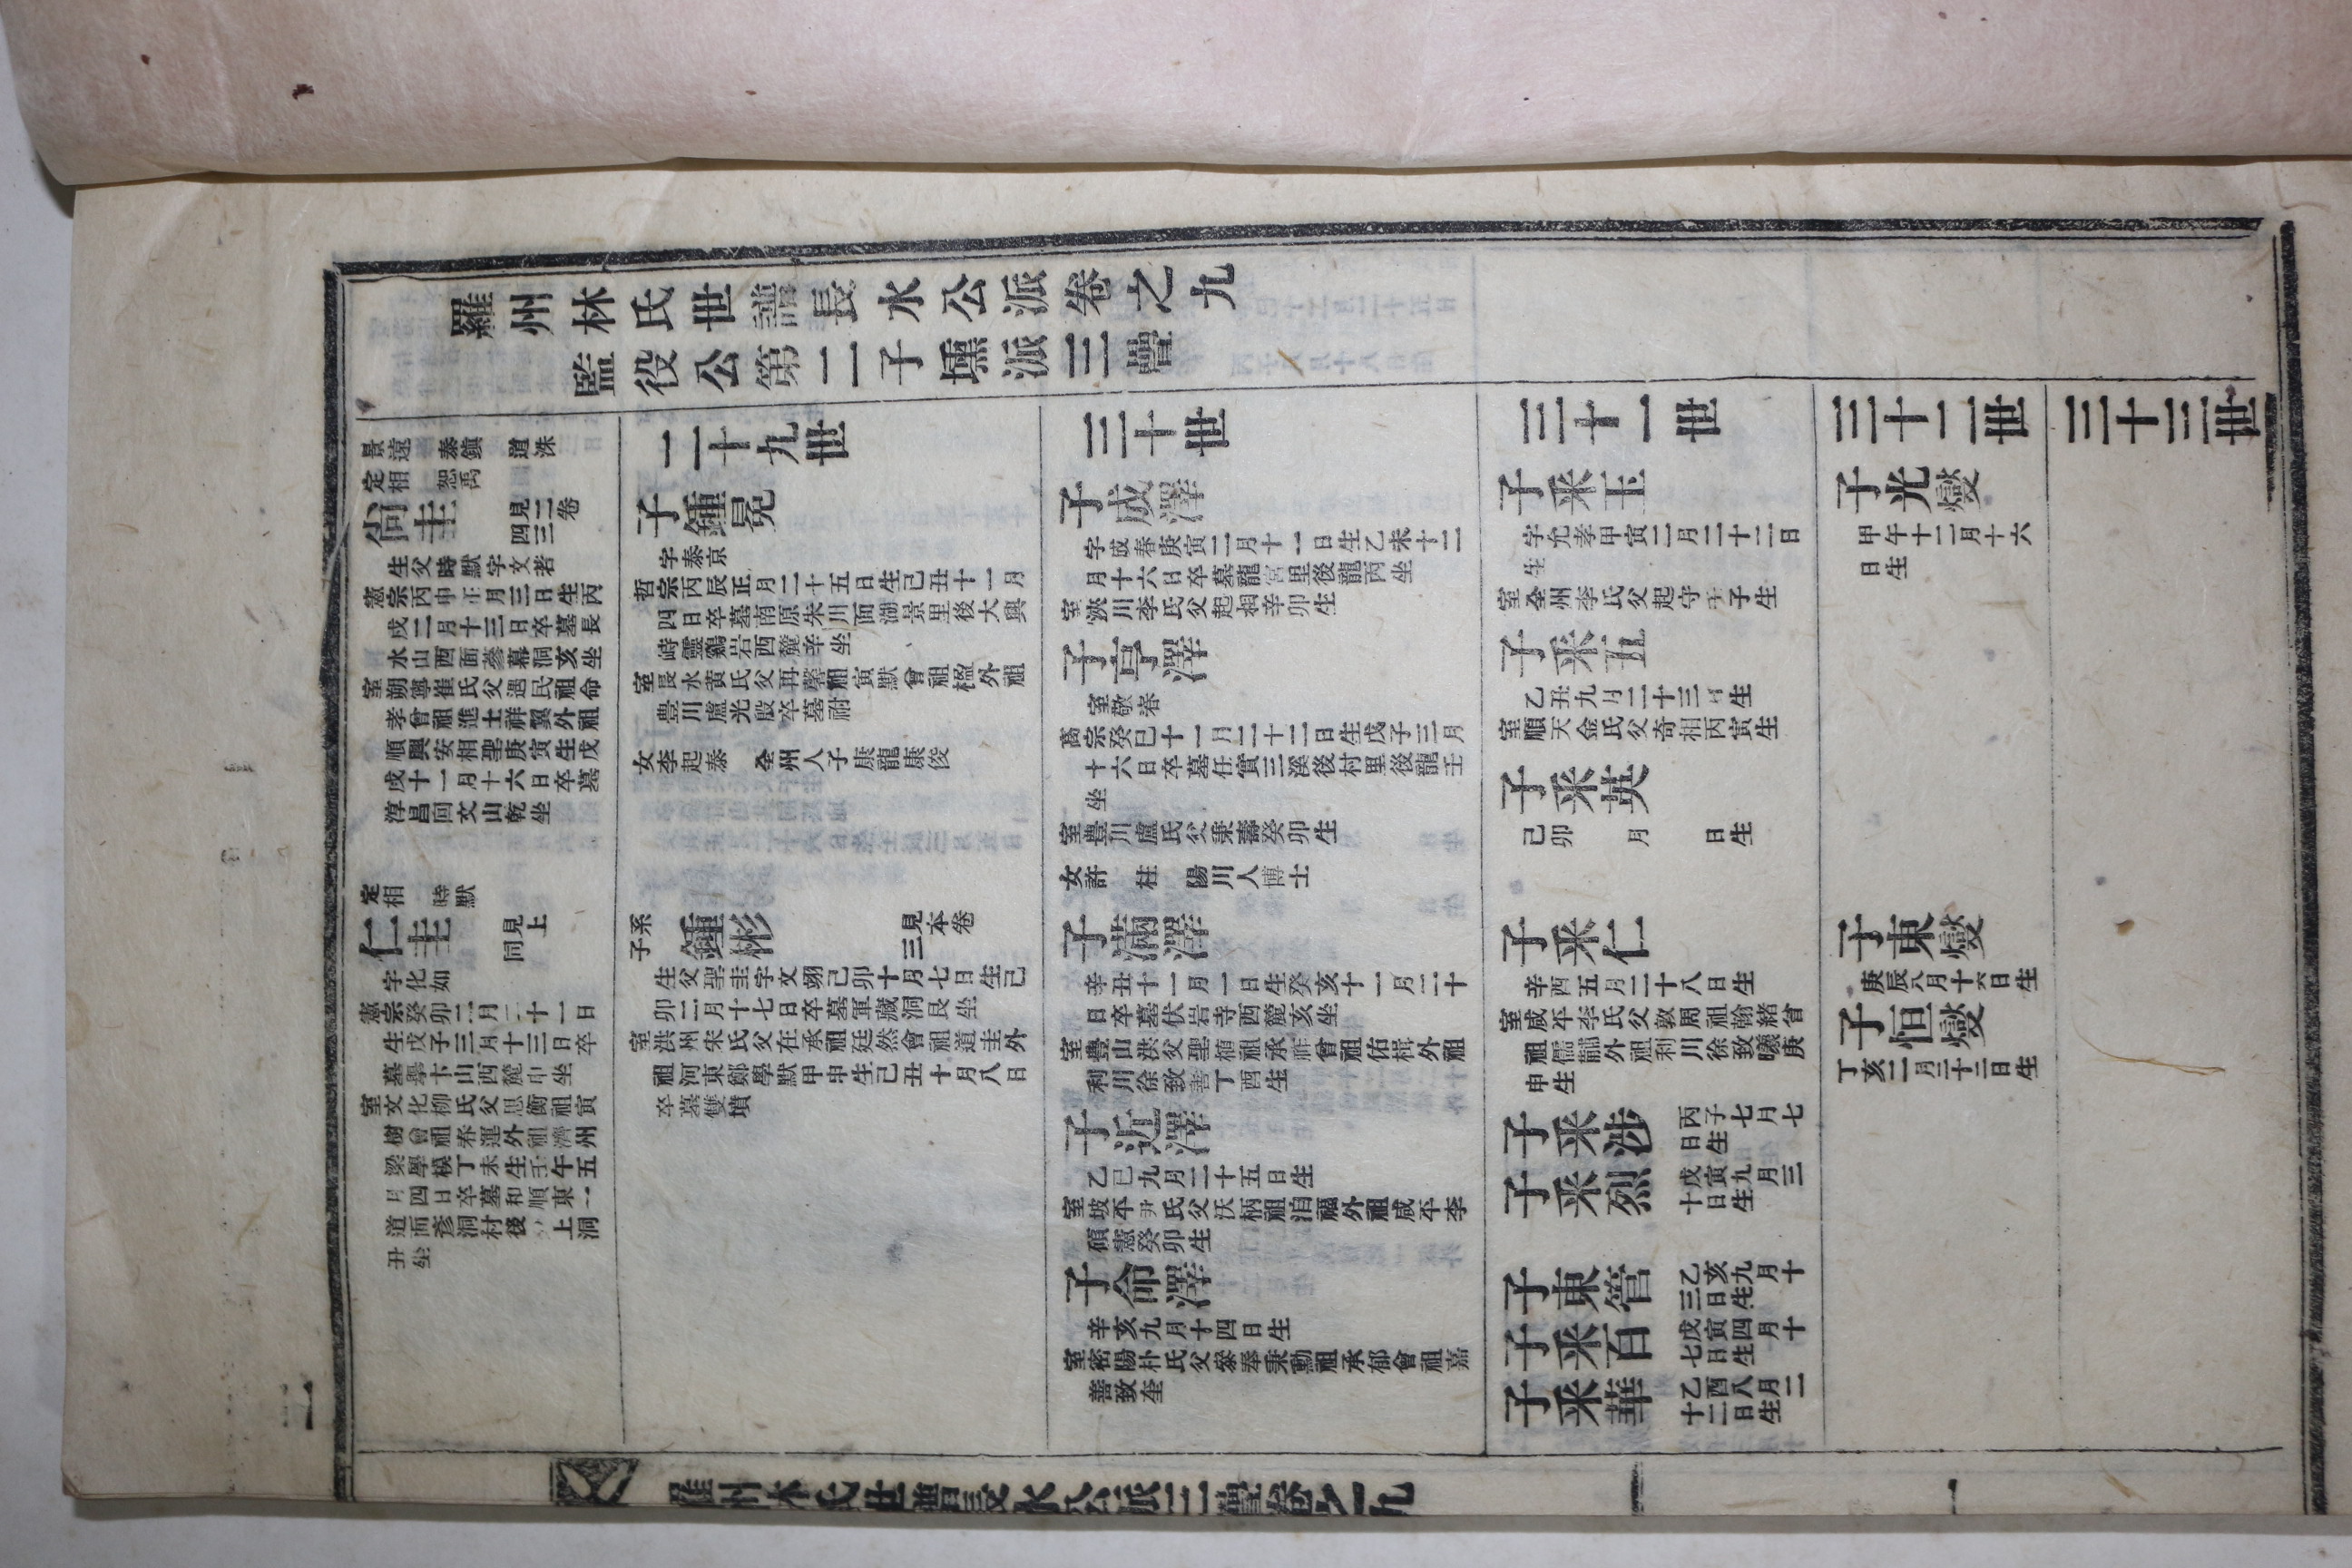 羅州林氏世譜長水公派卷之九
監役公第二子壎派三疊
景遠 泰鎭 道洙
定相 恕禹 見二卷
四三
尙圭
生父時默字文若
憲宗丙申正月三日生丙
戌二月十三日卒墓長
水山西面蓼幕洞亥坐
室朔寧崔氏父遇民祖命
孝曾祖進士祥翼外祖
順興安相聖庚寅生戊
戌十一月十六日卒墓
淳昌回文山乾坐
定相 時默 見上
同
仁圭
字化如
憲宗癸卯二月二十一日
生戊子三月十三日卒
墓畢卞山西麓申坐
室文化柳氏父思衡祖寅
樹曾祖春運外祖濟州
梁學模丁未生壬午五
月四日卒墓和順東一
道面彥洞村後 上洞
丑坐
二十九世
子鍾冕
字泰京
哲宗丙辰正月二十五日生己丑十一月
四日卒墓南原朱川面湖景里後大興
峙靈鷄岩西麓辛坐
室長水黃氏父再馨祖寅默曾祖楹外祖
豊川盧光殷卒墓祔
女李起泰 全州人子康龍康俊
系子 鍾彬 見本卷
三
生父聖圭字文翊己卯十月七日生己
卯二月十七日卒墓軍藏洞艮坐
室洪州宋氏父在承祖廷然會祖道圭外
祖河東鄭學默甲申生己丑十月八日
卒墓雙墳
三十世
子成澤
字成春庚寅二月十一日生乙未十二
月十六日卒墓龍宮里後龍丙坐
室浹川李氏父起相辛卯生
子亨澤
室敬春
高宗癸巳十一月二十二日生戊子三月
十六日卒墓任實三溪後村里後龍壬
坐
室豊川盧氏父秉壽癸卯生
女許 柱 陽川人博士
子滿澤
辛丑十一月一日生癸亥十一月二十
日卒墓伏岩寺西麓亥坐
室豊山洪父聖植祖承祚曾祖佑楫外祖
利川徐致善丁酉生
子近澤
乙巳九月二十五日生
室坡平尹氏父沃柄祖洎福外祖咸平李
碩憲癸卯生
子命澤
辛亥九月十四日生
室密陽朴氏父叅奉秉勳祖承郁會祖嘉
善致奎
三十一世
子釆玉
字允孝甲寅二月二十二日
生
室全州李氏父起守壬子生
子釆五
乙丑九月二十三日生
室順天金氏父奇相丙寅生
子釆英
己卯 月 日生
子釆仁
辛酉五月二十八日生
室咸平李氏父敦周祖翰緒曾
祖儒黼外祖利川徐致曦庚
申生
子釆涉 丙子七月七
日生
子釆烈 戊寅九月三
十日生
子東管 乙亥九月十
三日生
子釆百 戊寅四月十
七日生
子釆華 乙酉八月二
十二日生
三十二世
子光燮
甲午十二月十六
日生
子東燮
庚辰八月十六日生
子恒燮
丁亥二月二十二日生
三十三世
羅州林氏世譜長水公派三疊卷之九
一